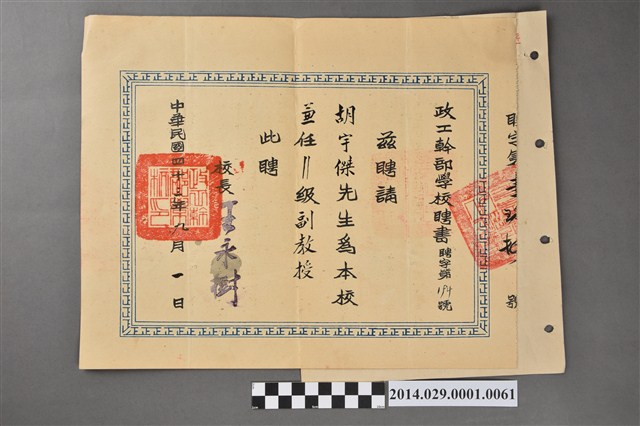 政工幹部學校聘書
聘字第
號
茲聘請
胡宇傑先生為本校
兼任〢級副教授
此聘
校長
王永樹
中華民國四十三年九月一日
聘字第
號
2014.029.0001.0061